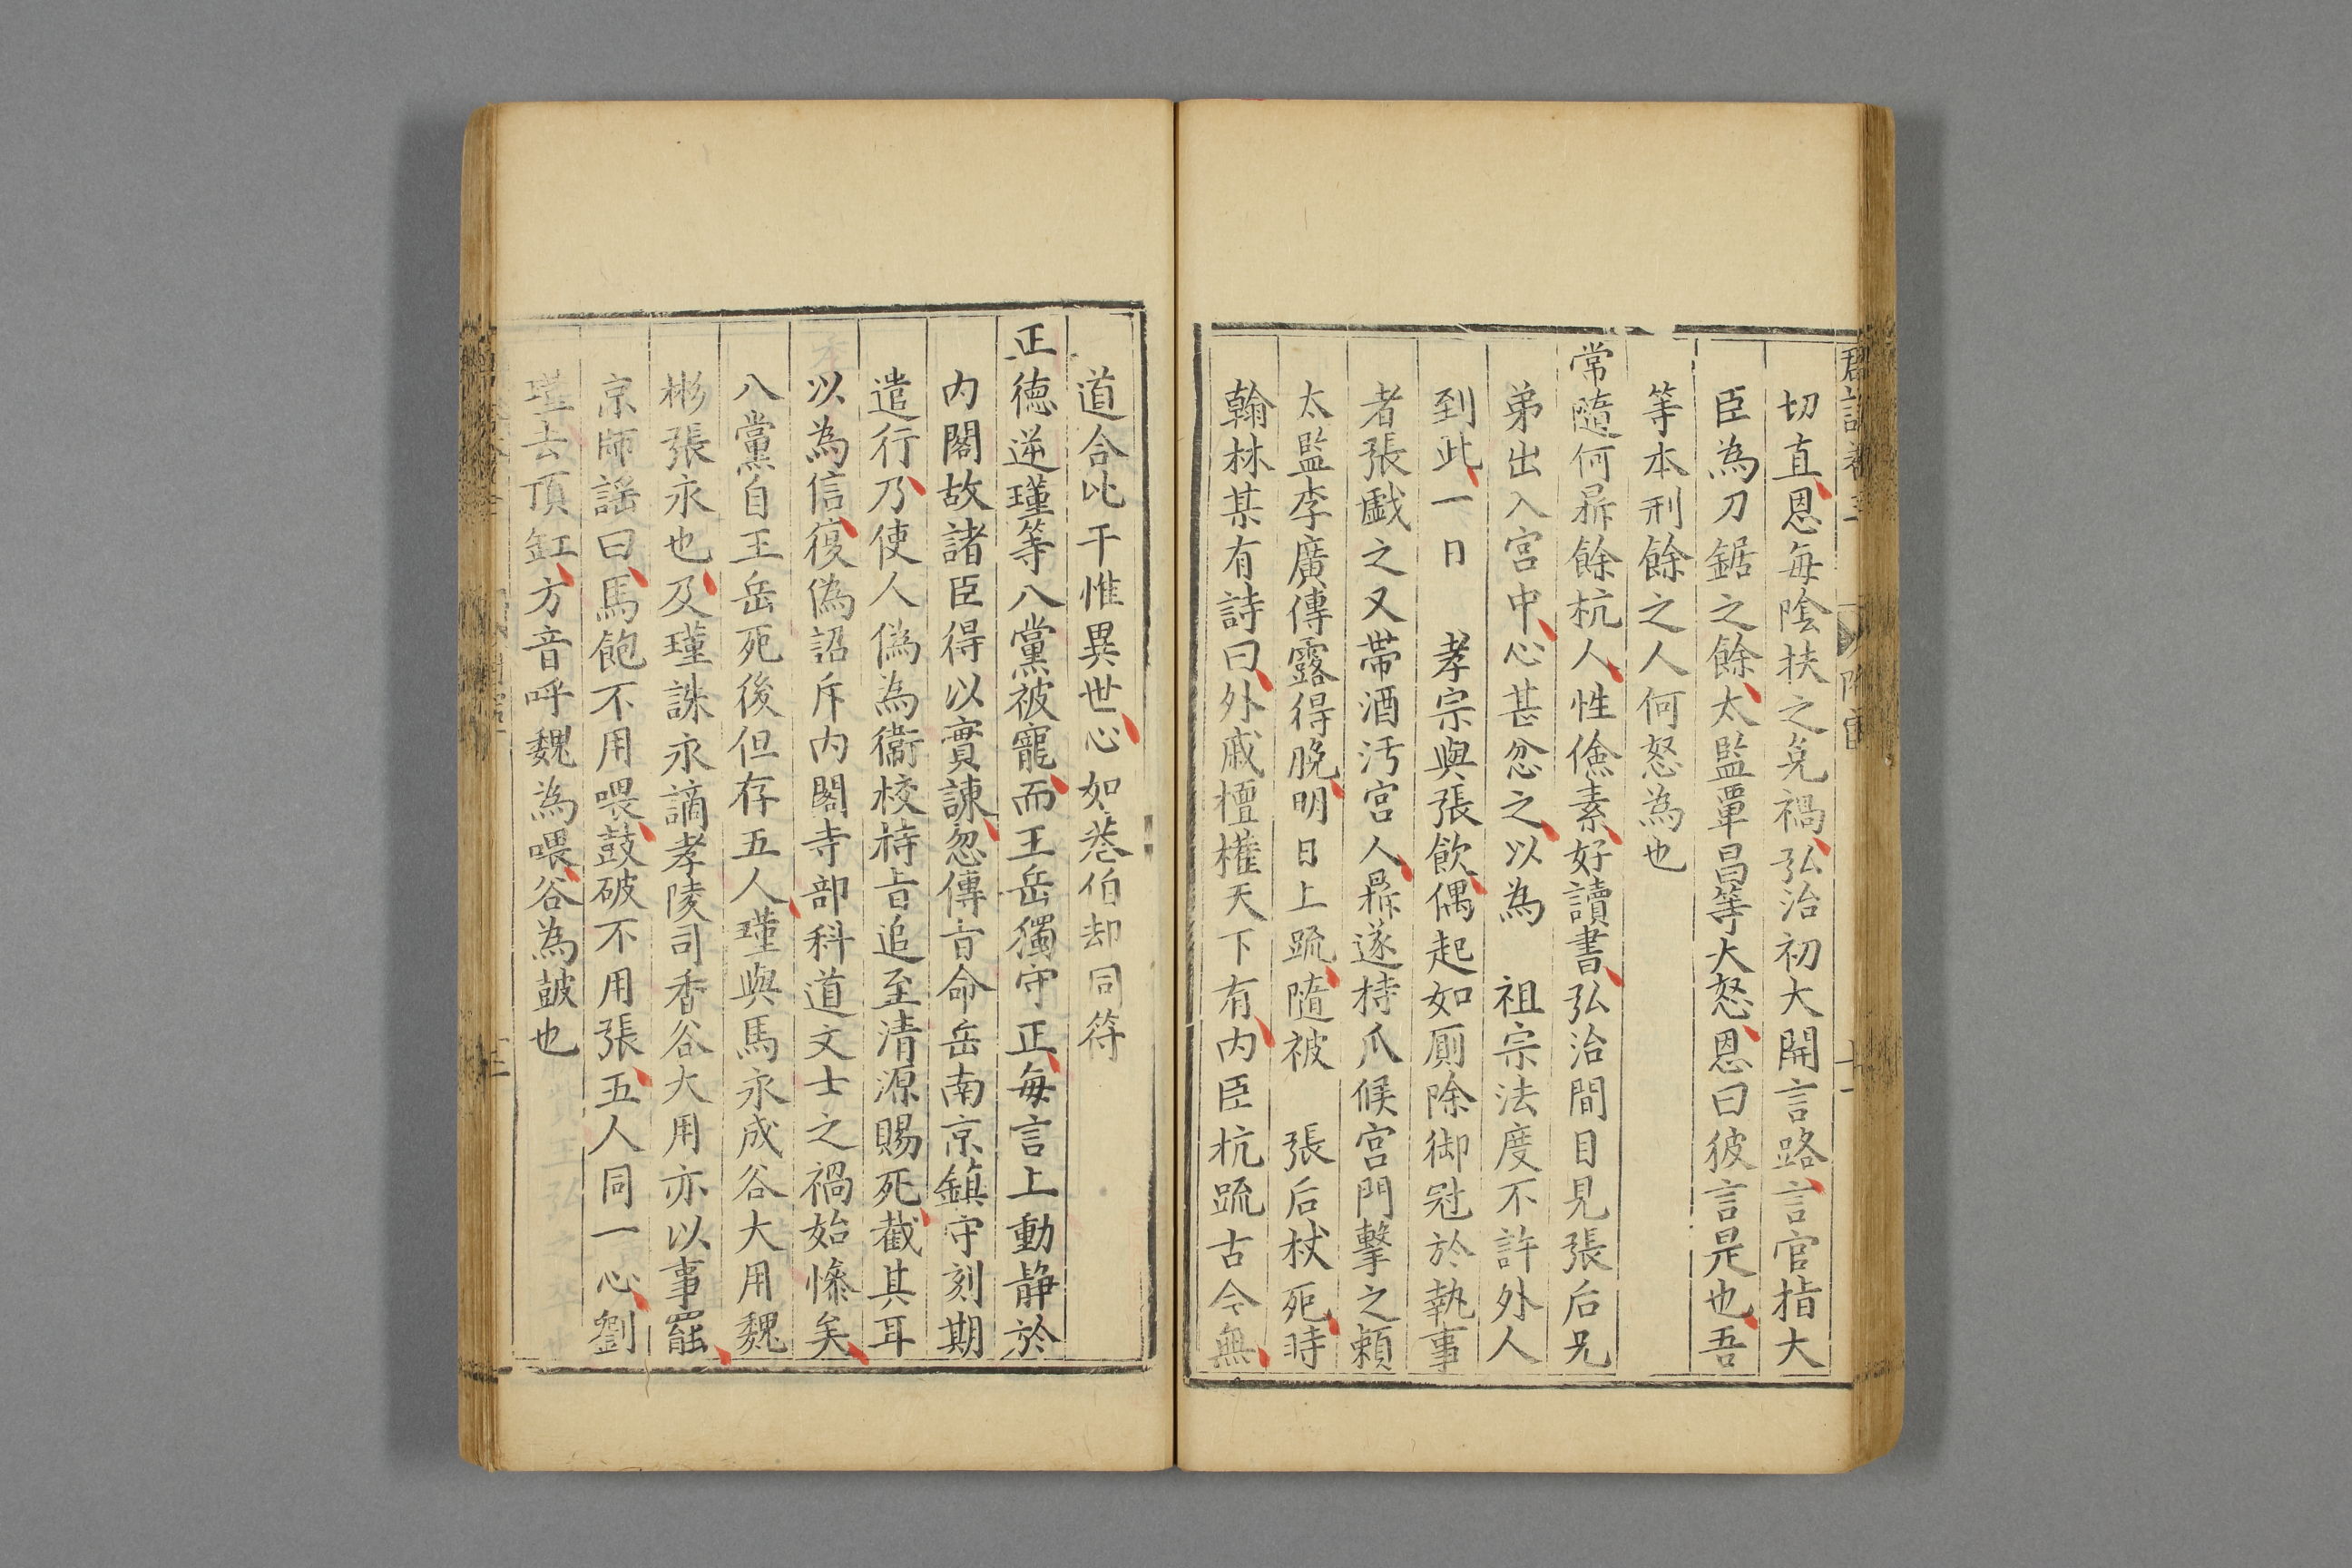 切直恩每陰扶之免禍弘治初大開言路言官指大
臣為刀鋸之餘太監覃昌等大怒恩曰彼言是也吾
等本刑餘之人何怒為也
常隨何鼎餘杭人性儉素好讀書弘治間目見張后兄
弟出入宮中心甚忿之以為 祖宗法度不許外人
到此一日 孝宗與張飲偶起如厠除御冠於執事
者張戲之又帶酒汚宮人鼎遂持爪候宮門擊之賴
太監李廣傳露得脫明日上疏隨被 張后杖死時
翰林某有詩曰外戚檀權天下有内臣杭疏古今無
道合比干惟異世心如巷伯却同符
正德逆瑾等八黨被寵而王岳獨守正每言上動靜於
内閣故諸臣得以實諌忽傳旨命岳南京鎮守刻期
遣行乃使人偽為衞校持旨追至清源賜死截其耳
以為信復偽詔斥内閣寺部科道文士之禍始慘矣
八黨自王岳死後但存五人瑾與馬永成谷大用魏
彬張永也及瑾誅永謫孝陵司香谷大用亦以事罷
京師謡曰馬飽不用喂鼓破不用張五人同一心劉
瑾去頂缸方音呼魏為喂谷為皷也